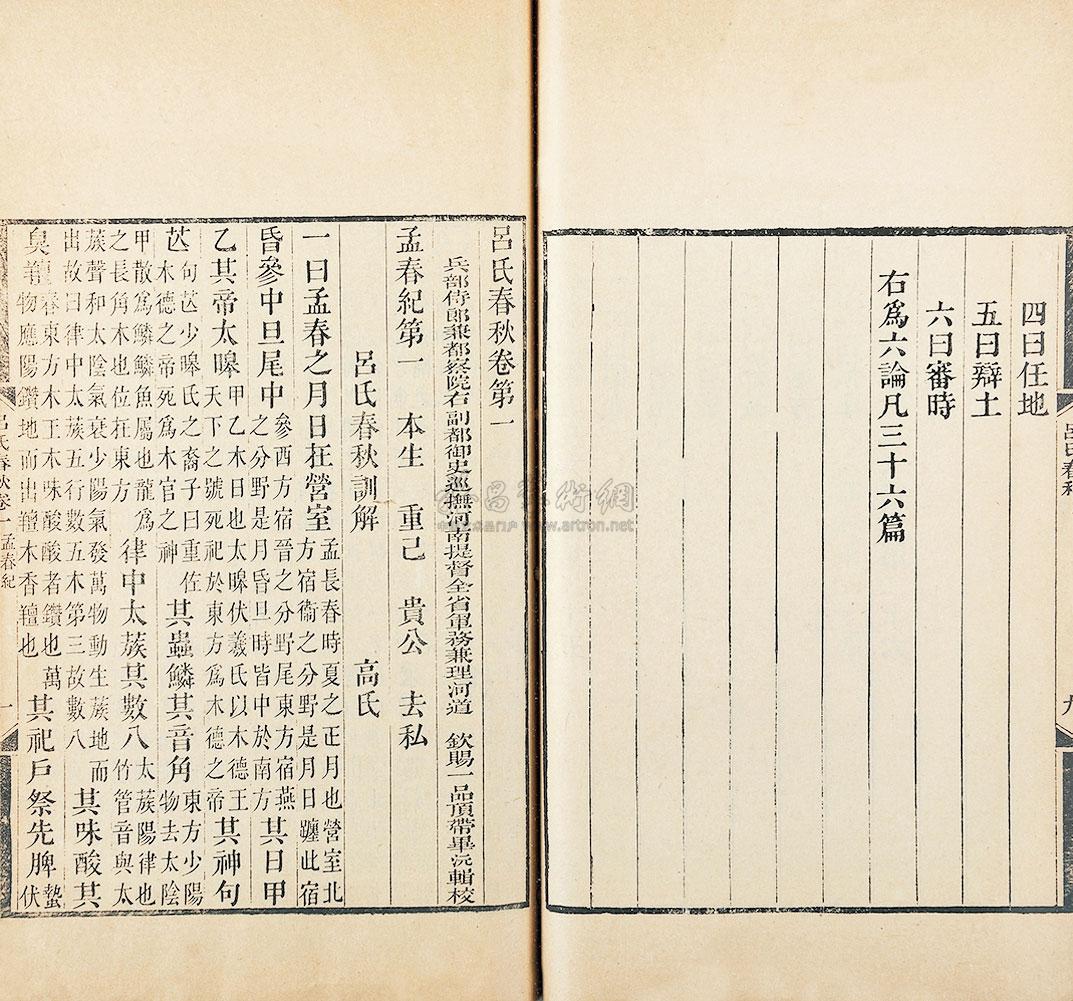 四曰任地
五曰辯土
六曰審時
右爲六論凡三十六篇
呂氏春秋卷第一
兵部侍郎兼都察院右副都御史巡撫河南提督全省軍務兼理河道　欽賜一品頂帶畢沅輯校
孟春紀第一　本生　重己　貴公　去私
呂氏春秋訓解　高氏
一曰孟春之月日在營室孟長春時夏之正月也營室北方宿衞之分野是月日躔此宿
昏參中旦尾中參西方宿晉之分野尾東方宿燕之分野是月昏旦時皆中於南方其日甲
乙其帝太皞甲乙木日也太皞伏羲氏以木德王天下之號死祀於東方爲木德之帝其神句
芒句芒少皞氏之裔子曰重佐木德之帝死爲木官之神其蟲鱗其音角東方少陽物去太陰
甲散爲鱗鱗魚屬也龍爲之長角木也位在東方律中太蔟其數八太蔟陽律也竹管音與太
蔟聲和太陰氣衰少陽氣發萬物動生蔟地而出故曰律中太蔟五行數五木第三故數八其味酸其
臭羶春東方木王木味酸酸者鑽也萬物應陽鑽地而出羶木香羶也其祀戶祭先脾蟄伏
呂氏春秋卷一　孟春紀　一
www.artron.net